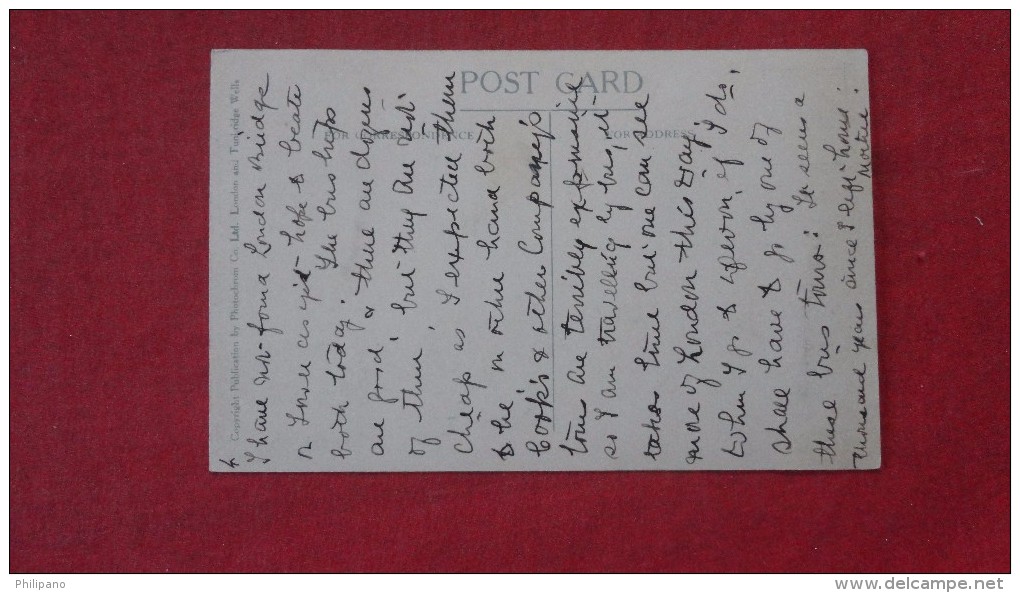 POST CARD
FOR CORRESPONDENCE
FOR ADDRESS
Copyright Publication by Photochrom Co. Ltd. London and Tunbridge Wells
4
I have not found London Bridge
or Tower as yet hope to locate
both today. The bus trips
are good, & there are dozens
of them, but they are not
cheap as I expected them
to be, on other hand both
Cook's & other Company's
tours are terribly expensive
so I am travelling by bus, it
takes time but one can see
more of London this way.
When I go to Devon, if I do,
shall have to go by one of
these bus tours. It seems a
thousand years since I left home.
Mother.
Philipano
www.delcampe.net